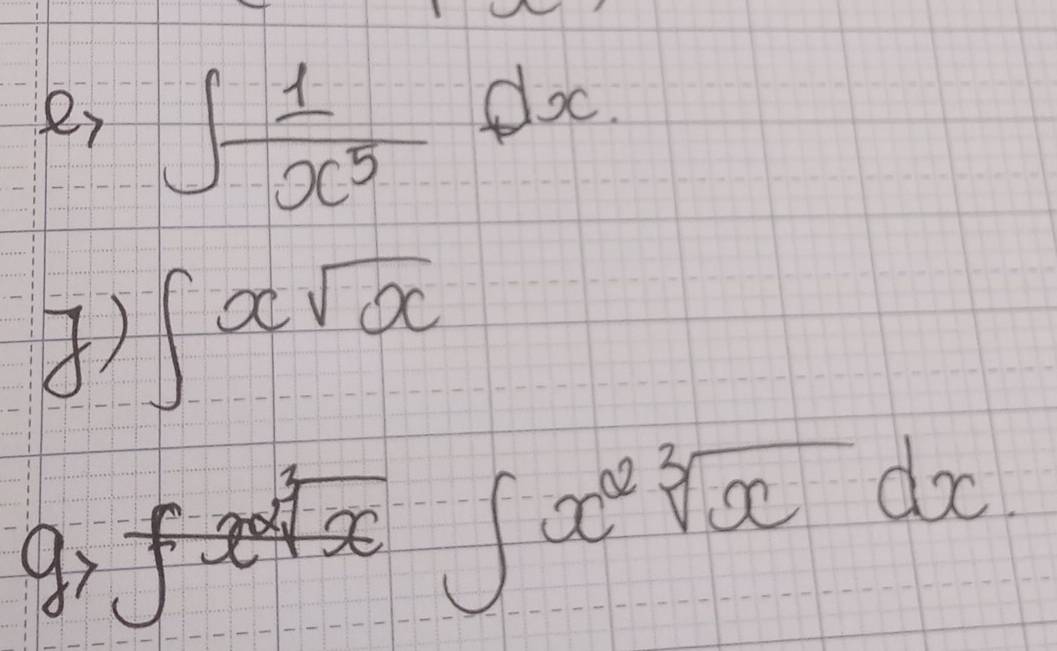 e) ∫ 1/x⁵ dx.
f) ∫ x√x
g) ∫ x²∛x ∫ x² ∛x dx.